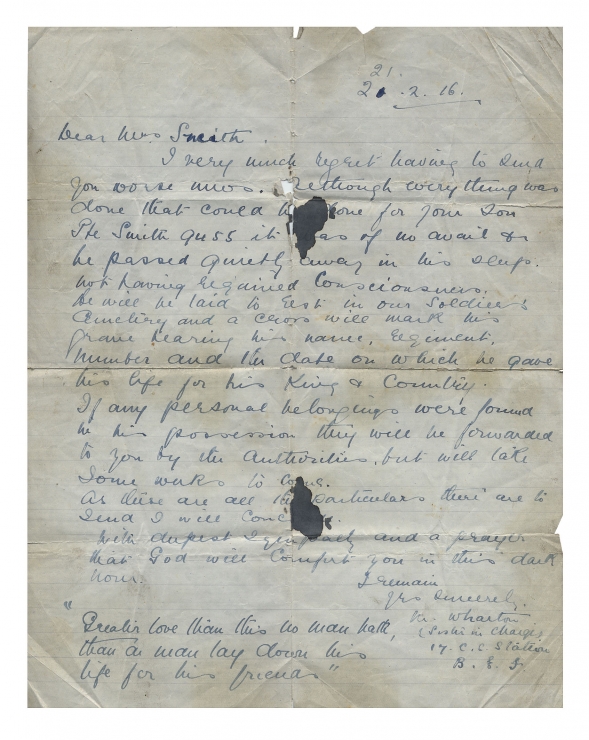 21.
2 . 2. 16.
Dear Mrs Smith.
I very much regret having to send
you worse news. Although everything was
done that could be done for your Son
Pte Smith 9455 it was of no avail &
he passed quietly away in his sleep.
not having regained Consciousness.
He will be laid to rest in our Soldier's
Cemetery and a cross will mark his
grave bearing his name, Regiment,
number and the date on which he gave
his life for his King & Country.
If any personal belongings were found
in his possession they will be forwarded
to you by the Authorities, but will take
Some weeks to come.
As these are all the particulars there are to
send I will Conc
With deepest Sympathy and a prayer
that God will Comfort you in this dark
hour.
I remain
Yrs Sincerely,
Wharton
(Sister in Charge)
17. C. C Station
B. E. F.
"Greater love than this no man hath,
than a man lay down his
life for his friends"